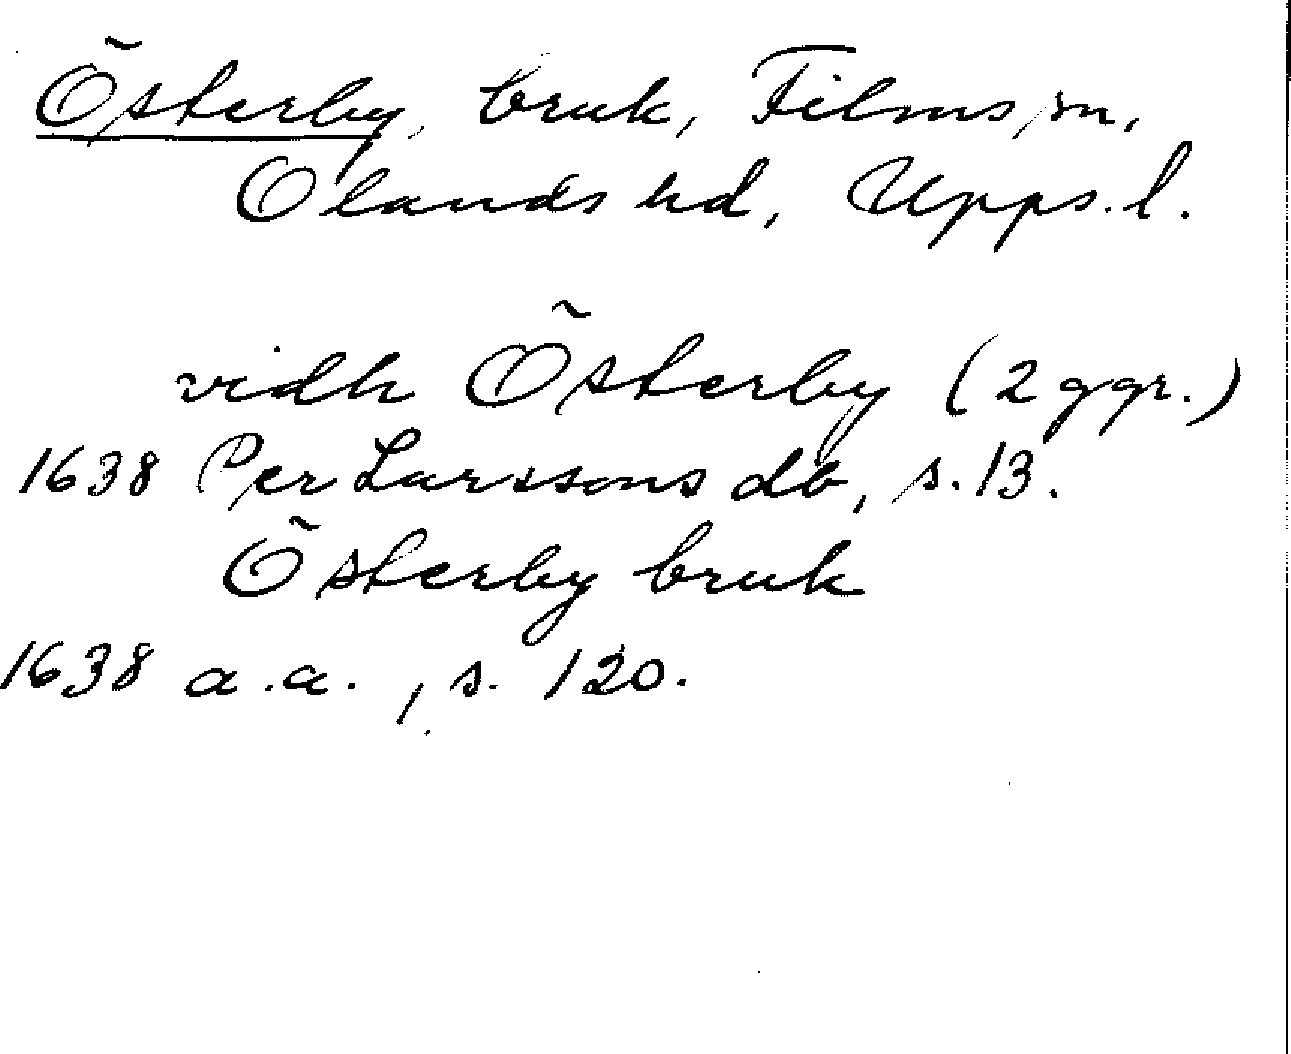 Österby, bruk, Films sn,
Olands hd, Upps. l.
vidh Österby (2 ggr.)
1638 Per Larssons db, s. 13.
Österby bruk
1638 a.a., s. 120.